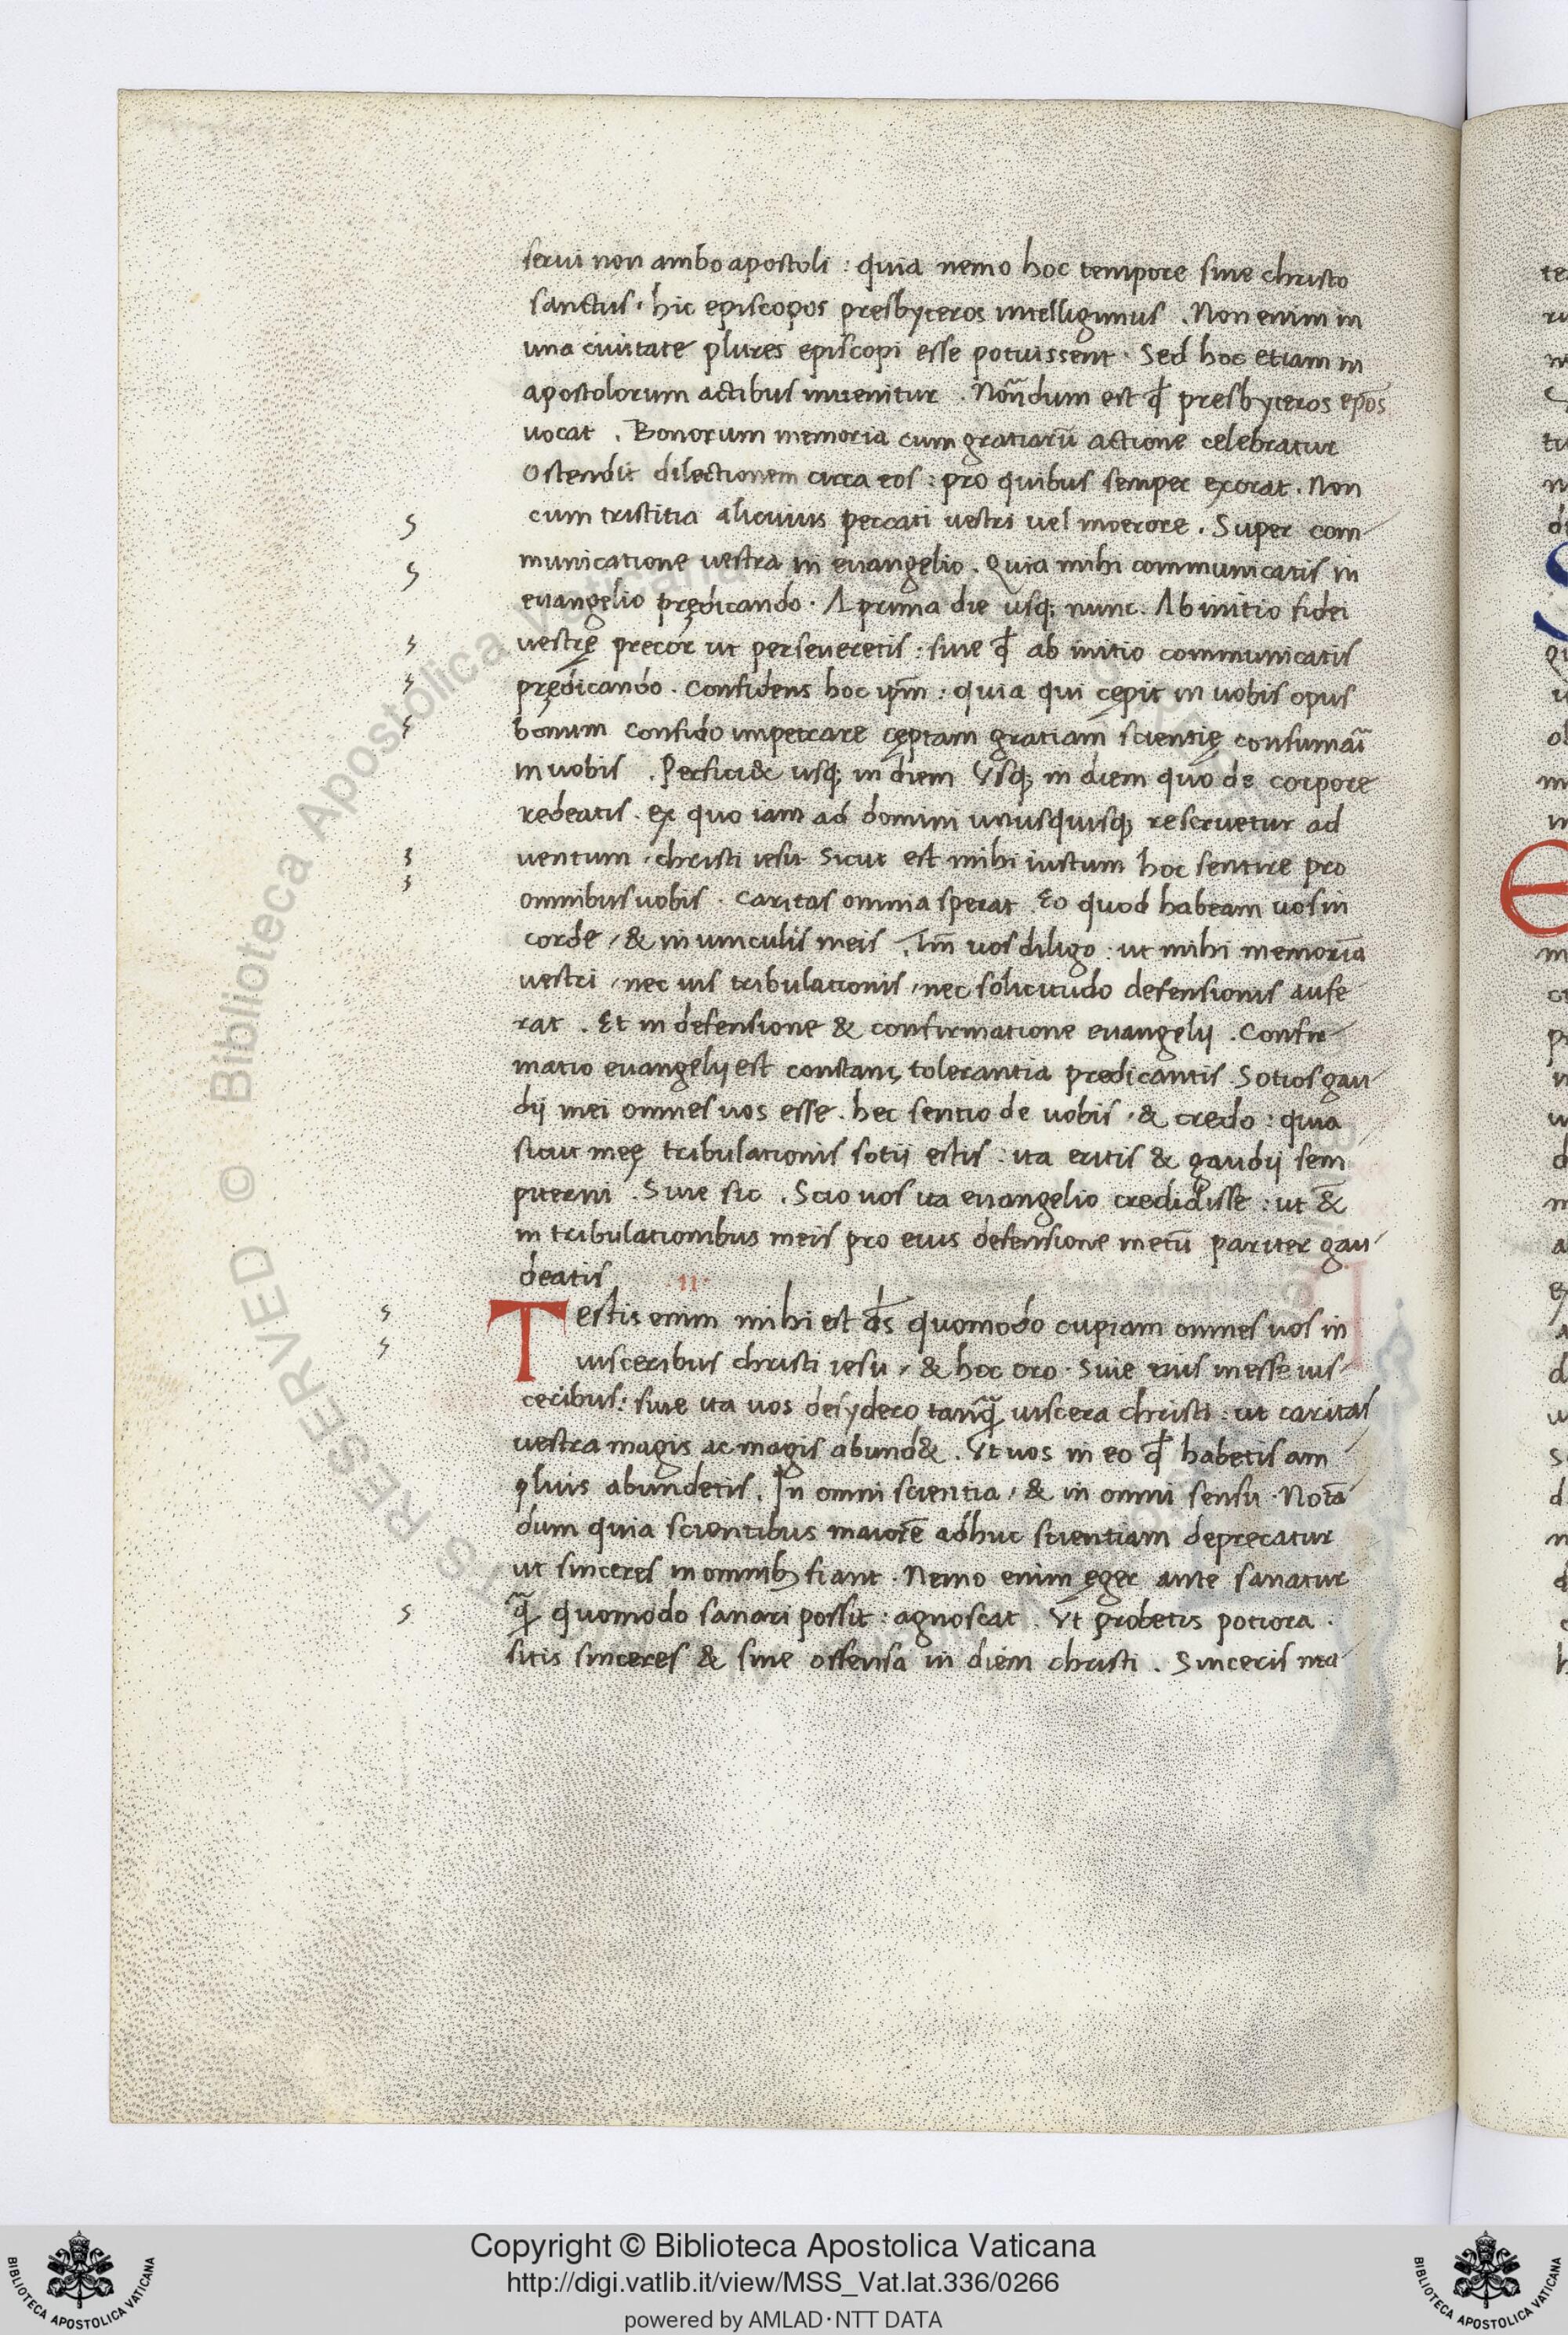 serui non ambo apostoli : quia nemo hoc tempore sine christo
sanctus · hic episcopos presbyteros intelligimus . Non enim in
una ciuitate plures episcopi esse potuissent · Sed hoc etiam in
apostolorum actibus inuenitur . Nonandum est qd presbyteros epos
uocat . Bonorum memoria cum gratiarū actione celebratur
Ostendit dilectionem circa eos : pro quibus semper exorat . Non
cum tristitia alicuius peccati uestri uel moerore . Super com
municatione uestra in euangelio . Quia mihi communicatis in
euangelio prędicando . A prima die usq; nunc . Ab initio fidei
uestrę precor ut perseueretis : siue qd ab initio communicatis
prędicando . Confidens hoc ipm̄ : quia qui cępit in uobis opus
bonum confido impetrare cęptam gratiam scientię consumari
in uobis . Perfici& usq; in diem Usq; in diem quo de corpore
redeatis . ex quo iam ad domini unusquisq; reseruetur ad
uentum · christi iesu Sicut est mihi iustum hoc sentire pro
omnibus uobis . Caritas omnia sperat . Eo quod habeam uos in
corde / & in uinculis meis . Tm̄ uos diligo : ut mihi memoriā
uestri / nec uis tribulationis / nec solicitudo defensionis aufe
rat . Et in defensione & confirmatione euangelij . Confir
matio euangelij est constans tolerantia predicantis . Sotios gau
dij mei omnes uos esse . hec sentio de uobis / & credo : quia
sicut meę tribulationis sotii estis : ita eritis & gaudij sem
piterni . Siue sic . Scio uos ita euangelio credidisse : ut &
in tribulationibus meis pro eius defensione mecū pariter gau
deatis
·II·
Testis enim mihi est ds̄ quomodo cupiam omnes uos in
uisceribus christi iesu / & hoc oro . Siue eius inesse uis
ceribus : siue ita uos desydero tanq̄ uiscera christi : ut caritas
uestra magis ac magis abund& . Ut uos in eo qd habetis am
plius abundetis . In omni scientia / & in omni sensu . Notā
dum quia scientibus maiorē adhuc scientiam deprecatur
ut sinceres in omnib; fiant . Nemo enim ęger ante sanatur
q̄ quomodo sanari possit : agnoscat . Ut probetis potiora .
sitis sinceres & sine offensa in diem christi . Sinceris nra
© Biblioteca Apostolica Vaticana
RESERVED
Copyright © Biblioteca Apostolica Vaticana
http://digi.vatlib.it/view/MSS_Vat.lat.336/0266
powered by AMLAD·NTT DATA
BIBLIOTECA APOSTOLICA VATICANA
BIBLIOTECA APOSTOLICA VATICANA